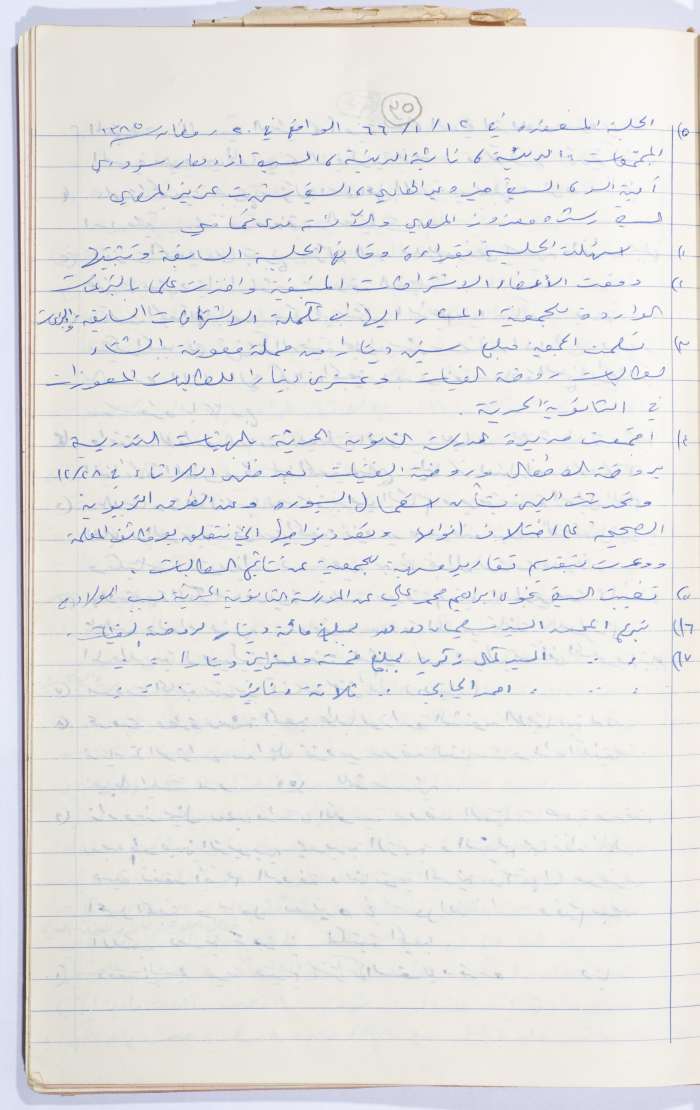 ٢٥
٥) الجلسة المنعقدة في ١٢ /١/ ٦٦ الموافق في ٢٠ رمضان ١٣٨٥
المجتمعات: الرئيسة، نائبة الرئيسة، السيدة
أمينة السر، السيدة عزيز المصري
السيدة رشده المصري والآنسة
١) استهلت الجلسة بقراءة وقائع الجلسة السابقة وتثبيتها
٢) دفعت الأعضاء الاشتراكات المتبقية وأخذت علما بالتبرعات
الواردة للجمعية المشار اليها في تكملة الاشتراكات السابقة
٣) تسلمت الجمعية مبلغ ستين دينارا من حملة معونة الشتاء
لطالبات روضة الفتيات وعشرين دينارا للطالبات المعوزات
في الثانوية الحرية .
٤) اجتمعت مديرة المدرسة الثانوية الحرية بالهيئات التدريسية
بروضة الاطفال وروضة الفتيات بعد ظهر الثلاثاء في ١٢/٢٨
وتحدثت اليهن بشأن استعمال السبورة وعن الطرق التربوية
الصحيحة على اختلاف انواعها وتعدد نواحيها التي تتعلق بوظائف المعلمة
ووعدت بتقديم تقارير شهرية للجمعية عن نتائج الطالبات .
٥) تغيبت السيدة نجوى ابراهيم محمد علي عن المدرسة الثانوية الحرية بسبب الولادة
٦) تبرع المحسن السيد بمبلغ مائة دينار لروضة الفتيات .
٧) " " السيد كمال زكريا بمبلغ خمسة وعشرين دينارا " "
" " " احمد " ثلاثة دنانير " "